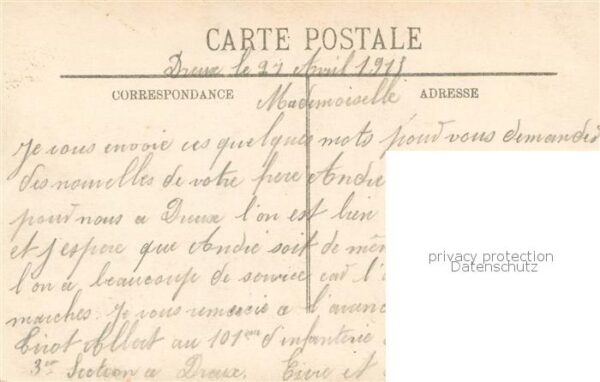 CARTE POSTALE
Dreux le 27 Avril 1915
CORRESPONDANCE
ADRESSE
Mademoiselle
Je vous envoie ces quelques mots pour vous demander
des nouvelles de votre frere André
pour nous a Dreux l'on est bien
et j'espere que André soit de mêm
l'on a beaucoup de service car l'
marches Je vous remercie a l'avanc
au 101eme d'infanterie
3eme Section a Dreux. Eure et
privacy protection
Datenschutz